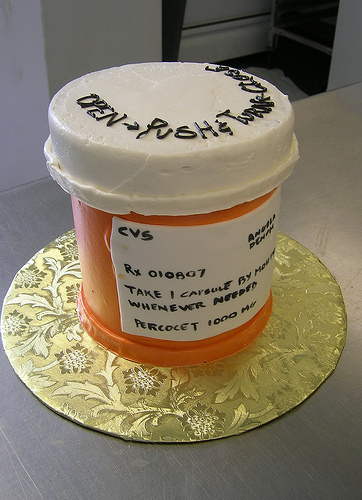 OPEN → PUSH &
CVS
ANGELA
Rx 010807
TAKE 1 CAPSULE BY MOUTH
WHENEVER NEEDED
PERCOCET 1000 MG